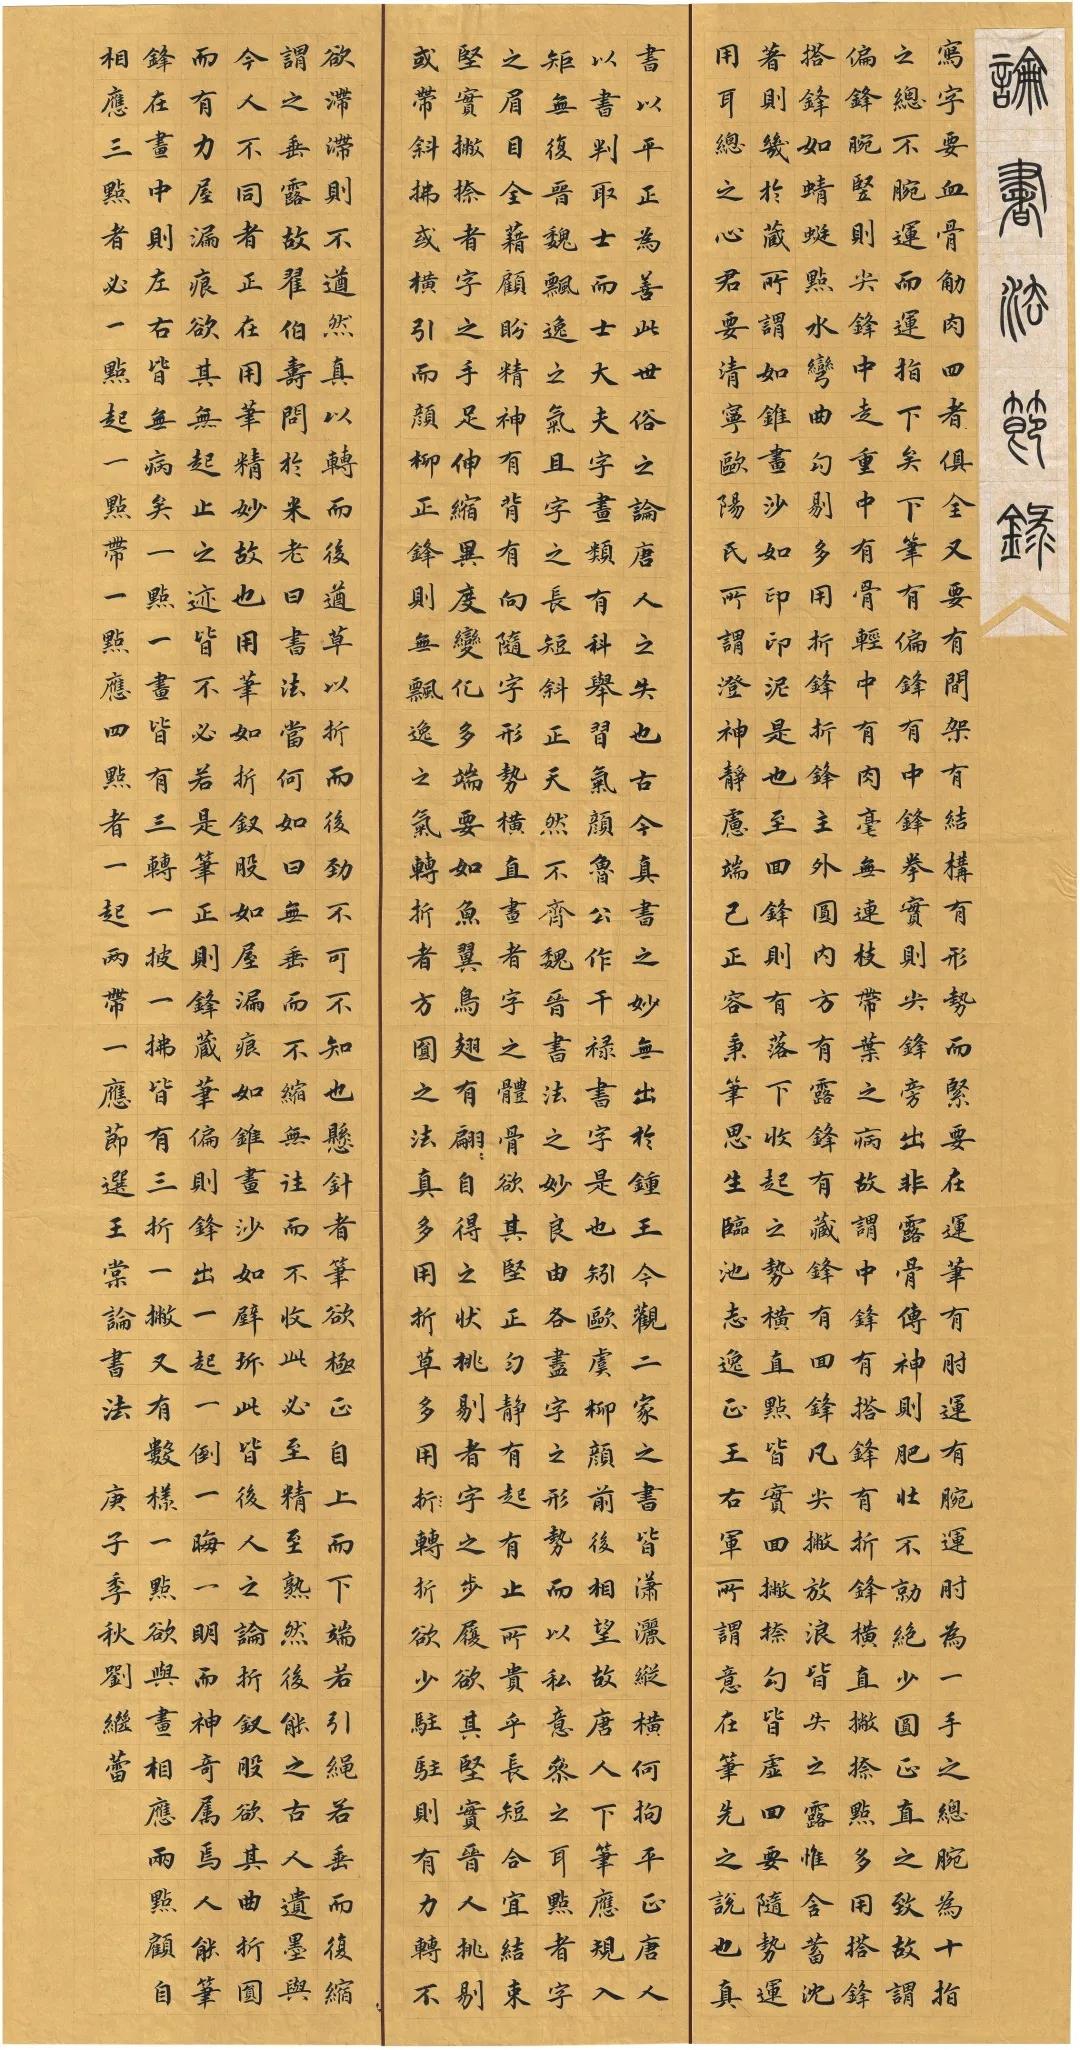 論書法節錄
寫字要血骨觔肉四者俱全又要有間架有結構有形勢而緊要在運筆有肘運有腕運肘為一手之總腕為十指
之總不腕運而運指下矣下筆有偏鋒有中鋒拳實則尖鋒旁出非露骨傳神則肥壯不勍絕少圓正直之致故謂
偏鋒腕豎則尖鋒中走重中有骨輕中有肉毫無連枝帶葉之病故謂中鋒有搭鋒有折鋒橫直撇捺點多用搭鋒
搭鋒如蜻蜓點水彎曲勾剔多用折鋒折鋒主外圓內方有露鋒有藏鋒有回鋒凡尖撇放浪皆失之露惟含蓄沈
著則幾於藏所謂如錐畫沙如印印泥是也至回鋒則有落下收起之勢橫直點皆實回撇捺勾皆虛回要隨勢運
用耳總之心君要清寧歐陽氏所謂澄神靜慮端己正容秉筆思生臨池志逸正王右軍所謂意在筆先之說也真
書以平正為善此世俗之論唐人之失也古今真書之妙無出於鍾王今觀二家之書皆瀟灑縱橫何拘平正唐人
以書判取士而士大夫字畫類有科舉習氣顏魯公作干祿書字是也矧歐虞柳顏前後相望故唐人下筆應規入
矩無復晉魏飄逸之氣且字之長短斜正天然不齊魏晉書法之妙良由各盡字之形勢而以私意參之耳點者字
之眉目全藉顧盼精神有背有向隨字形勢橫直畫者字之體骨欲其堅正勻靜有起有止所貴乎長短合宜結束
堅實撇捺者字之手足伸縮異度變化多端要如魚翼鳥翅有翩〻自得之狀挑剔者字之步履欲其堅實晉人挑剔
或帶斜拂或橫引而顏柳正鋒則無飄逸之氣轉折者方圓之法真多用折草多用折轉折欲少駐駐則有力轉不
欲滯滯則不遒然真以轉而後遒草以折而後勁不可不知也懸針者筆欲極正自上而下端若引繩若垂而復縮
謂之垂露故翟伯壽問於米老曰書法當何如曰無垂而不縮無往而不收此必至精至熟然後能之古人遺墨與
今人不同者正在用筆精妙故也用筆如折釵股如屋漏痕如錐畫沙如壁坼此皆後人之論折釵股欲其曲折圓
而有力屋漏痕欲其無起止之迹皆不必若是筆正則鋒藏筆偏則鋒出一起一倒一晦一明而神奇属焉人能筆
鋒在畫中則左右皆無病矣一點一畫皆有三轉一披一拂皆有三折一撇又有數樣一點欲與畫相應兩點顧自
相應三點者必一點起一點帶一點應四點者一起兩帶一應節選王棠論書法 庚子季秋劉繼蕾